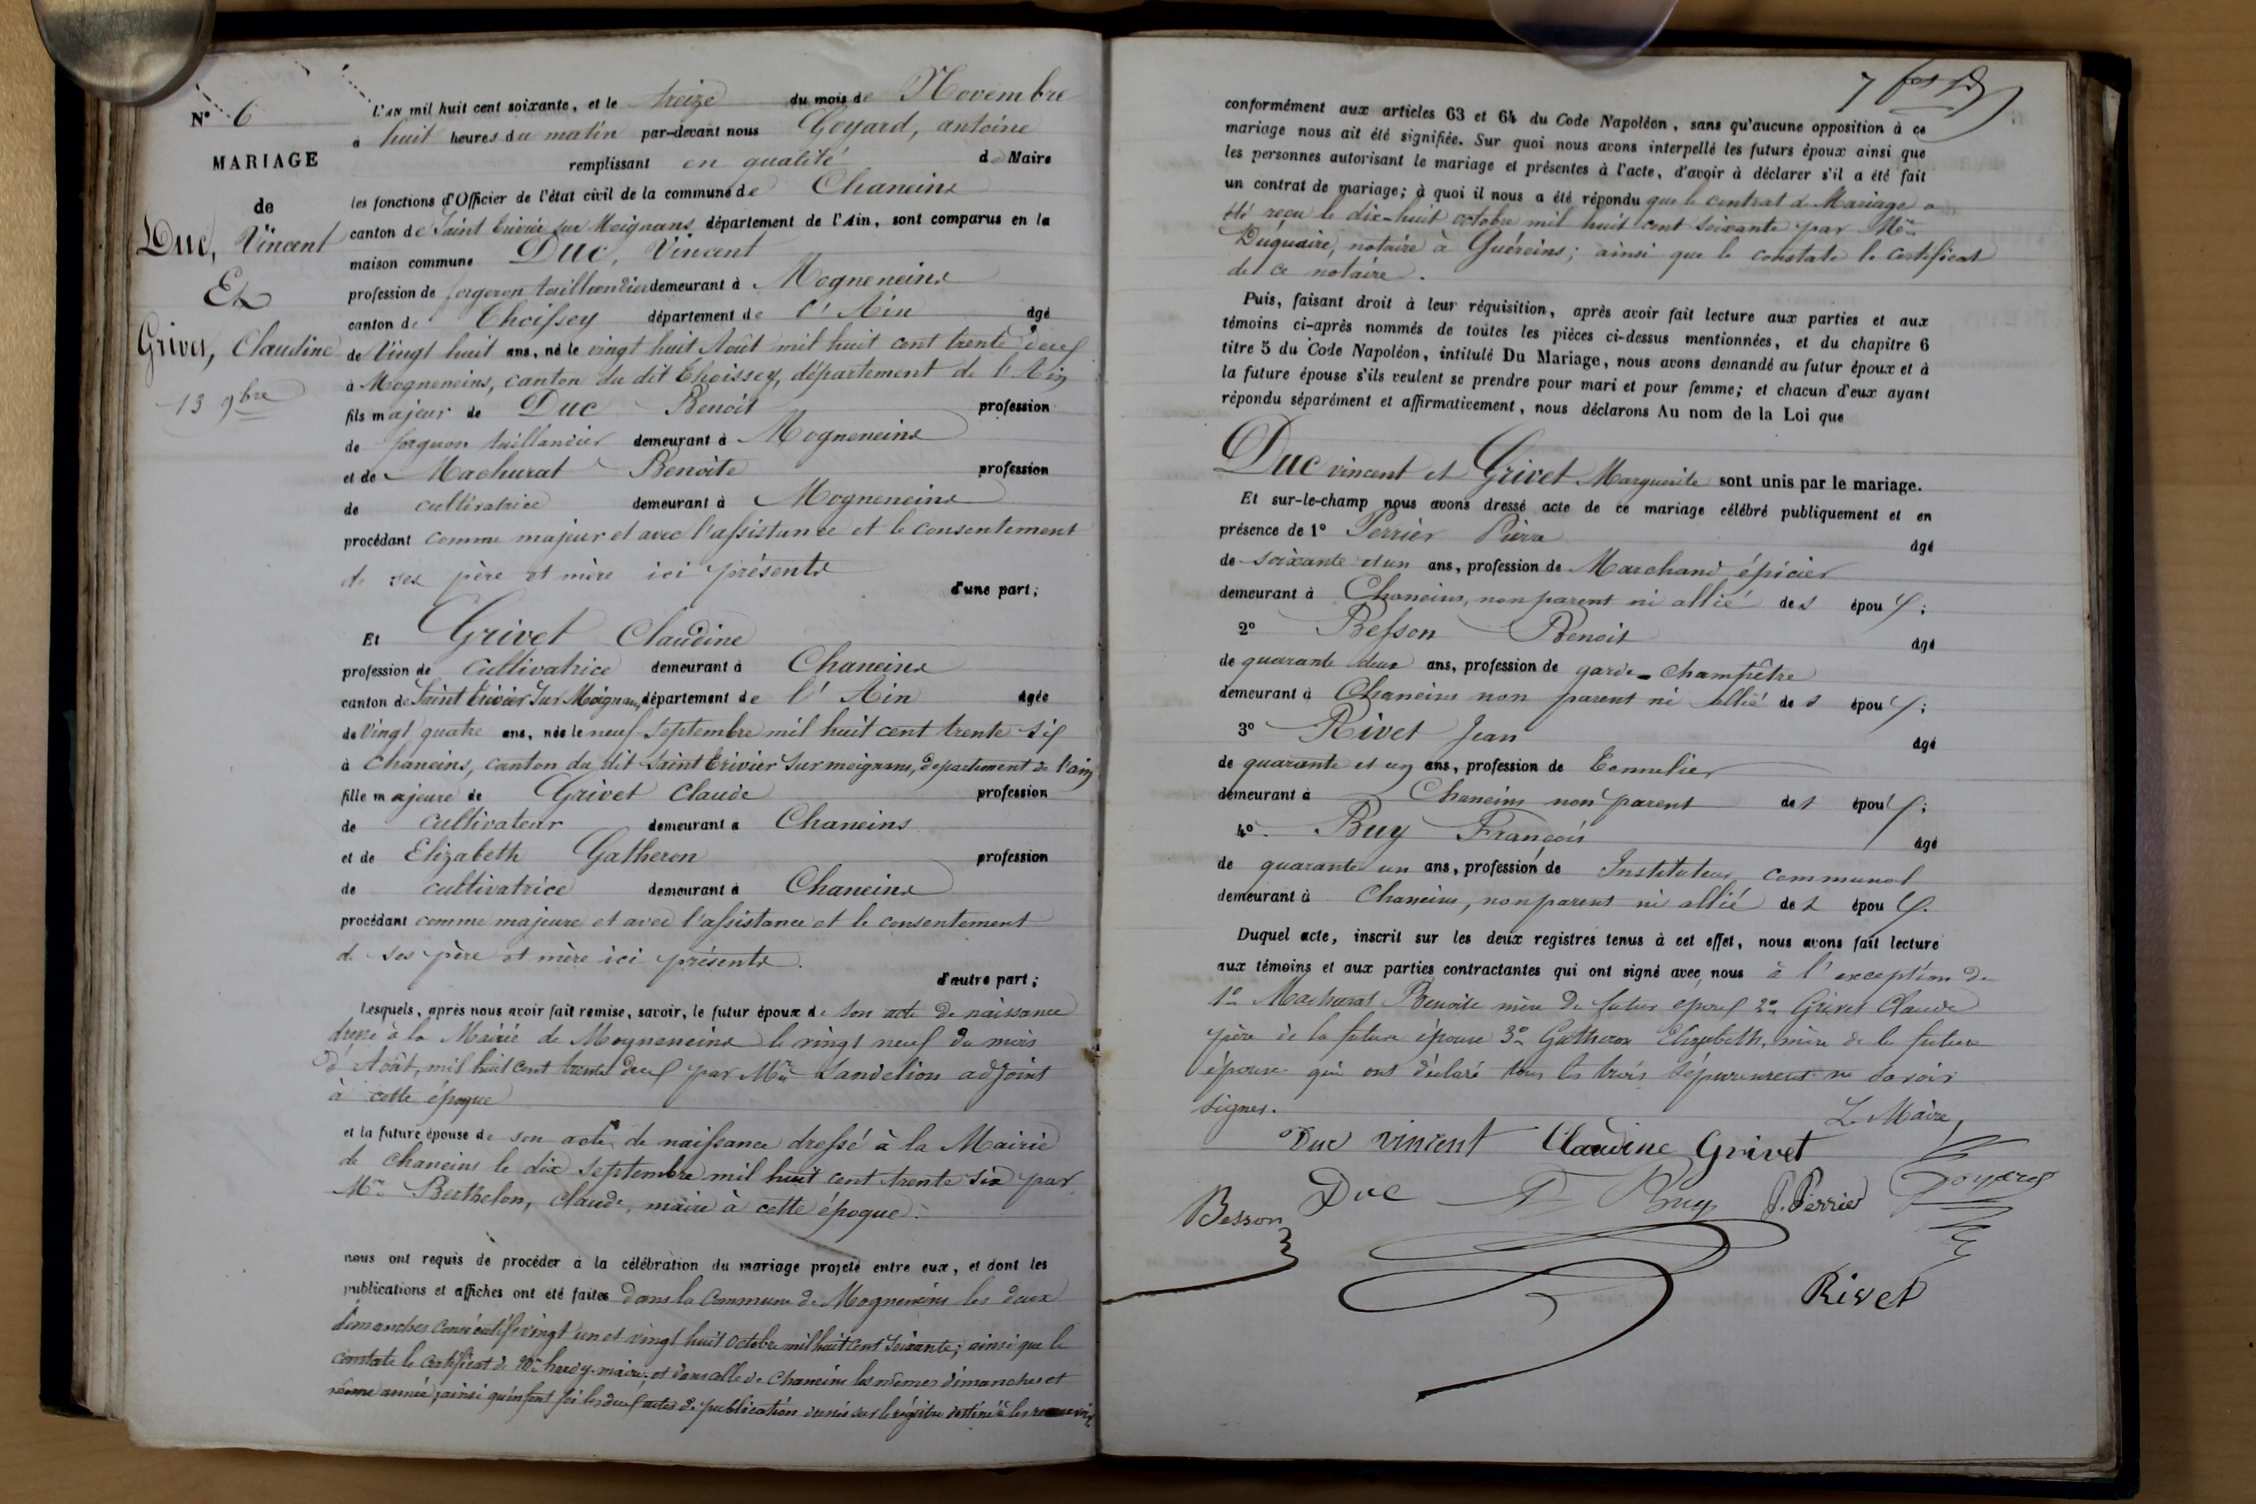 N° 6
MARIAGE
de
Duc, Vincent
Et
Grivet, Claudine
13 9bre
L'AN mil huit cent soixante, et le treize du mois de Novembre
à huit heures du matin par-devant nous Goyard, antoine
remplissant en qualité de Maire
les fonctions d'Officier de l'état civil de la commune de Chaneins
canton de Saint Trivier sur Moignans département de l'Ain, sont comparus en la
maison commune Duc, Vincent
profession de forgeron taillandier demeurant à Mogneneins
canton de Thoissey département de l'Ain âgé
de Vingt huit ans, né le vingt huit Août mil huit cent trente deux
à Mogneneins, canton du dit Thoissey, département de l'Ain
fils majeur de Duc Benoit profession
de forgeron taillandier demeurant à Mogneneins
et de Machurat Benoite profession
de cultivatrice demeurant à Mogneneins
procédant comme majeur et avec l'assistance et le consentement
de ses père et mère ici présents
d'une part;
Et Grivet Claudine
profession de cultivatrice demeurant à Chaneins
canton de Saint Trivier Sur Moignans département de l'Ain âgée
de Vingt quatre ans, née le neuf Septembre mil huit cent trente six
à Chaneins, canton du dit Saint Trivier Sur moignans, departement de l'ain
fille majeure de Grivet Claude profession
de cultivateur demeurant à Chaneins
et de Elizabeth Gatheron profession
de cultivatrice demeurant à Chaneins
procédant comme majeure et avec l'assistance et le consentement
de ses père et mère ici présents.
d'autre part;
Lesquels, après nous avoir fait remise, savoir, le futur époux de son acte de naissance
dressé à la Mairie de Mogneneins le vingt neuf du mois
d'Août, mil huit cent trente deux par Mr Landelion adjoint
à cette époque
et la future épouse de son acte de naissance dressé à la Mairie
de Chaneins le dix Septembre mil huit cent trente six par
Mr Berthelon, Claude, maire à cette époque.
nous ont requis de procéder à la célébration du mariage projeté entre eux, et dont les
publications et affiches ont été faites dans la Commune de Mogneneins les deux
dimanches consécutifs vingt un et vingt huit octobre mil huit cent soixante; ainsi que le
constate le certificat de Mr maire, et dans celle de Chaneins les mêmes dimanches et
même année, ainsi qu'en font foi les deux actes de publication dressés sur le régistre destiné à les recevoir
conformément aux articles 63 et 64 du Code Napoléon, sans qu'aucune opposition à ce
mariage nous ait été signifiée. Sur quoi nous avons interpellé les futurs époux ainsi que
les personnes autorisant le mariage et présentes à l'acte, d'avoir à déclarer s'il a été fait
un contrat de mariage; à quoi il nous a été répondu que le contrat de Mariage a
été reçu le dix-huit octobre mil huit cent soixante par Mtre
Duquaire, notaire à Guéreins; ainsi que le constate le certificat
de ce notaire.
Puis, faisant droit à leur réquisition, après avoir fait lecture aux parties et aux
témoins ci-après nommés de toutes les pièces ci-dessus mentionnées, et du chapitre 6
titre 5 du Code Napoléon, intitulé Du Mariage, nous avons demandé au futur époux et à
la future épouse s'ils veulent se prendre pour mari et pour femme; et chacun d'eux ayant
répondu séparément et affirmativement, nous déclarons Au nom de la Loi que
Duc vincent et Grivet Marguerite sont unis par le mariage.
Et sur-le-champ nous avons dressé acte de ce mariage célébré publiquement et en
présence de 1° Perrier Pierre âgé
de soixante et un ans, profession de Marchand épicier
demeurant à Chaneins, non parent ni allié des époux;
2° Besson Benoit âgé
de quarante deux ans, profession de garde-champêtre
demeurant à Chaneins non parent ni allié des époux;
3° Rivet Jean âgé
de quarante et un ans, profession de Tonnelier
demeurant à Chaneins non parent des époux;
4° Buy François âgé
de quarante un ans, profession de Instituteur communal
demeurant à Chaneins, non parent ni allié des époux.
Duquel acte, inscrit sur les deux registres tenus à cet effet, nous avons fait lecture
aux témoins et aux parties contractantes qui ont signé avec nous à l'exception de
1° Machurat Benoite mère du futur epoux 2° Grivet Claude
père de la future épouse 3° Gatheron Elizabeth, mère de la future
épouse qui ont déclaré tous les trois séparément ne savoir
signer.
Le Maire,
Duc vincent Claudine Grivet
Goyard
Besson Duc Buy P. Perrier
Rivet